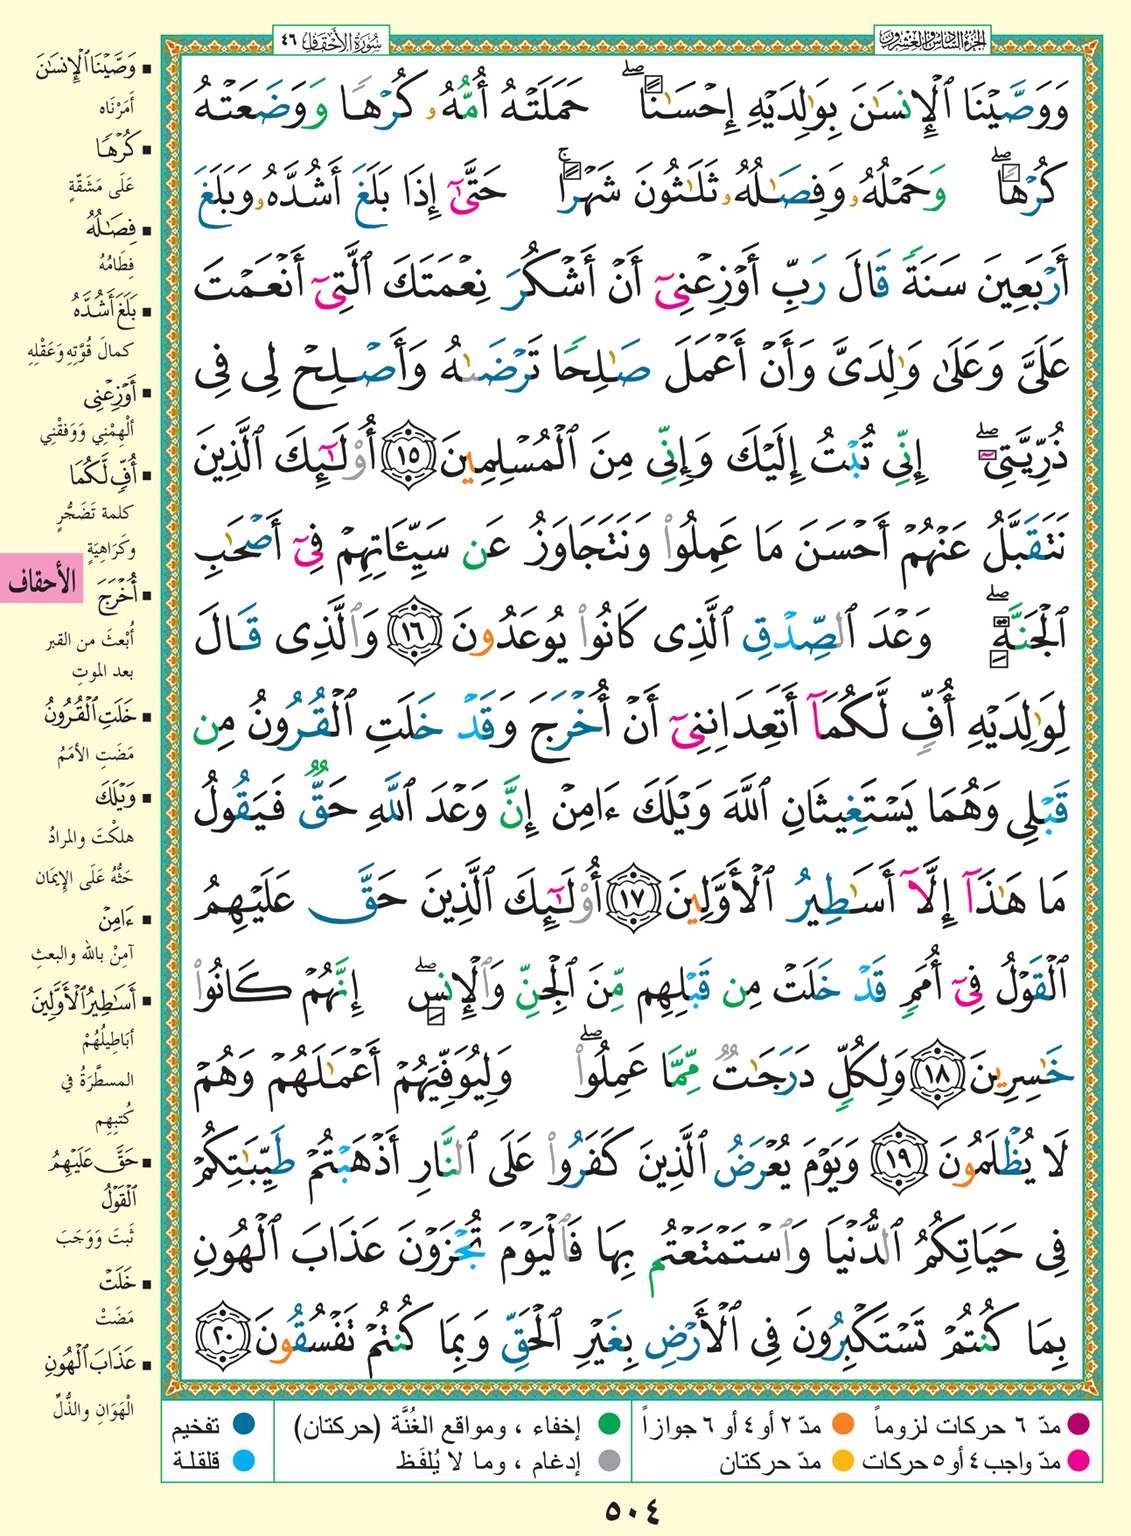 الجزء السادس والعشرون
سُورَةُ الأَحْقَافِ ٤٦
وَوَصَّيْنَا ٱلْإِنسَٰنَ بِوَٰلِدَيْهِ إِحْسَٰنًا ۖ حَمَلَتْهُ أُمُّهُۥ كُرْهًا وَوَضَعَتْهُ
كُرْهًا ۖ وَحَمْلُهُۥ وَفِصَٰلُهُۥ ثَلَٰثُونَ شَهْرًا ۚ حَتَّىٰٓ إِذَا بَلَغَ أَشُدَّهُۥ وَبَلَغَ
أَرْبَعِينَ سَنَةً قَالَ رَبِّ أَوْزِعْنِىٓ أَنْ أَشْكُرَ نِعْمَتَكَ ٱلَّتِىٓ أَنْعَمْتَ
عَلَىَّ وَعَلَىٰ وَٰلِدَىَّ وَأَنْ أَعْمَلَ صَٰلِحًا تَرْضَىٰهُ وَأَصْلِحْ لِى فِى
ذُرِّيَّتِىٓ ۖ إِنِّى تُبْتُ إِلَيْكَ وَإِنِّى مِنَ ٱلْمُسْلِمِينَ ١٥ أُو۟لَٰٓئِكَ ٱلَّذِينَ
نَتَقَبَّلُ عَنْهُمْ أَحْسَنَ مَا عَمِلُوا۟ وَنَتَجَاوَزُ عَن سَيِّـَٔاتِهِمْ فِىٓ أَصْحَٰبِ
ٱلْجَنَّةِ ۖ وَعْدَ ٱلصِّدْقِ ٱلَّذِى كَانُوا۟ يُوعَدُونَ ١٦ وَٱلَّذِى قَالَ
لِوَٰلِدَيْهِ أُفٍّ لَّكُمَآ أَتَعِدَانِنِىٓ أَنْ أُخْرَجَ وَقَدْ خَلَتِ ٱلْقُرُونُ مِن
قَبْلِى وَهُمَا يَسْتَغِيثَانِ ٱللَّهَ وَيْلَكَ ءَامِنْ إِنَّ وَعْدَ ٱللَّهِ حَقٌّ فَيَقُولُ
مَا هَٰذَآ إِلَّآ أَسَٰطِيرُ ٱلْأَوَّلِينَ ١٧ أُو۟لَٰٓئِكَ ٱلَّذِينَ حَقَّ عَلَيْهِمُ
ٱلْقَوْلُ فِىٓ أُمَمٍ قَدْ خَلَتْ مِن قَبْلِهِم مِّنَ ٱلْجِنِّ وَٱلْإِنسِ ۖ إِنَّهُمْ كَانُوا۟
خَٰسِرِينَ ١٨ وَلِكُلٍّ دَرَجَٰتٌ مِّمَّا عَمِلُوا۟ ۖ وَلِيُوَفِّيَهُمْ أَعْمَٰلَهُمْ وَهُمْ
لَا يُظْلَمُونَ ١٩ وَيَوْمَ يُعْرَضُ ٱلَّذِينَ كَفَرُوا۟ عَلَى ٱلنَّارِ أَذْهَبْتُمْ طَيِّبَٰتِكُمْ
فِى حَيَاتِكُمُ ٱلدُّنْيَا وَٱسْتَمْتَعْتُم بِهَا فَٱلْيَوْمَ تُجْزَوْنَ عَذَابَ ٱلْهُونِ
بِمَا كُنتُمْ تَسْتَكْبِرُونَ فِى ٱلْأَرْضِ بِغَيْرِ ٱلْحَقِّ وَبِمَا كُنتُمْ تَفْسُقُونَ ٢٠
■ وَصَّيْنَا ٱلْإِنسَٰنَ
أَمَرْنَاه
■ كُرْهًا
عَلَى مَشَقّةٍ
■ فِصَٰلُهُ
فِطَامُهُ
■ بَلَغَ أَشُدَّهُ
كمالَ قُوَّتِهِ وَعَقْلِهِ
■ أَوْزِعْنِى
ألْهِمْنِي وَوَفقْنِي
■ أُفٍّ لَّكُمَا
كلمة تَضَجُّرٍ
وكَرَاهِيَةٍ
■ أُخْرَجَ
أُبْعثَ من القبر
بعد الموتِ
■ خَلَتِ ٱلْقُرُونُ
مَضَتِ الأمَمُ
■ وَيْلَكَ
هلكْتَ والمرادُ
حَثُّهُ عَلَى الإِيمَان
■ ءَامِنْ
آمِنْ بالله والبعثِ
■ أَسَٰطِيرُ ٱلْأَوَّلِينَ
أبَاطِيلُهُمْ
المسطَّرَةُ في
كُتبِهِم
■ حَقَّ عَلَيْهِمُ
ٱلْقَوْلُ
ثَبتَ وَوَجَبَ
■ خَلَتْ
مَضَتْ
■ عَذَابَ ٱلْهُونِ
الْهَوَانِ والذُّلِّ
الأحقاف
مدّ ٦ حركات لزوماً
مدّ ٢ أو ٤ أو ٦ جوازاً
إخفاء ، ومواقع الغُنَّة (حركتان)
تفخيم
مدّ واجب ٤ أو ٥ حركات
مدّ حركتان
إدغام ، وما لا يُلفَظ
قلقلة
٥٠٤